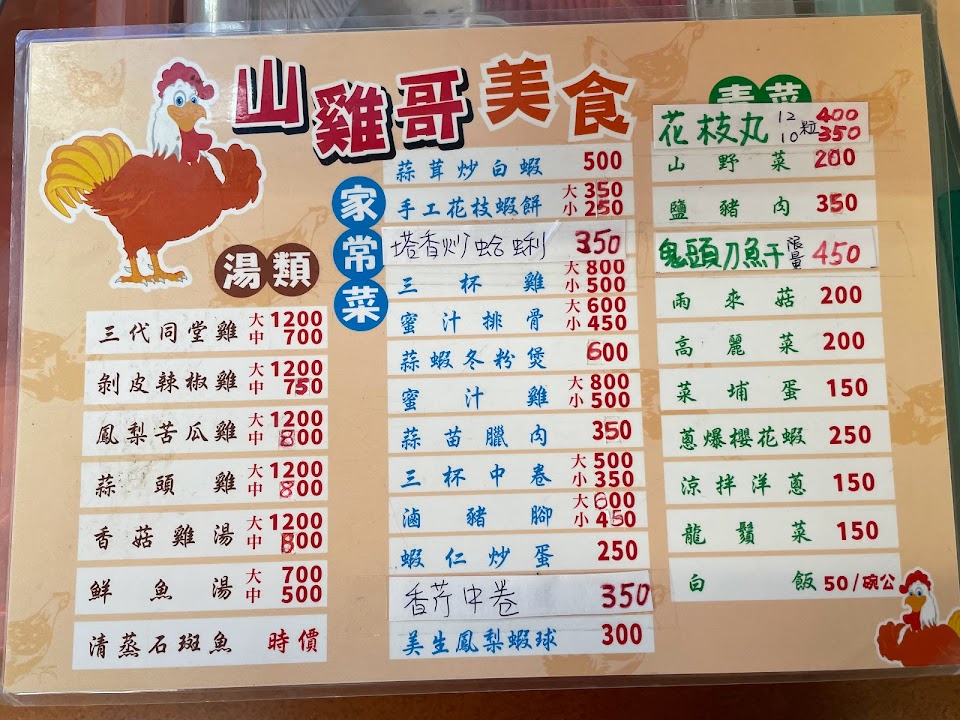 山雞哥美食
湯類
三代同堂雞 大1200 中700
剝皮辣椒雞 大1200 中750
鳳梨苦瓜雞 大1200 中800
蒜頭雞 大1200 中800
香菇雞湯 大1200 中800
鮮魚湯 大700 中500
清蒸石斑魚 時價
家常菜
蒜茸炒白蝦 500
手工花枝蝦餅 大350 小250
塔香炒蛤蜊 350
三杯雞 大800 小500
蜜汁排骨 大600 小450
蒜蝦冬粉煲 600
蜜汁雞 大800 小500
蒜苗臘肉 350
三杯中卷 大500 小350
滷豬腳 大600 小450
蝦仁炒蛋 250
香芹中卷 350
美生鳳梨蝦球 300
青菜
花枝丸 12 10粒 400 350
山野菜 200
鹽豬肉 350
鬼頭刀魚干 限量 450
雨來菇 200
高麗菜 200
菜埔蛋 150
蔥爆櫻花蝦 250
涼拌洋蔥 150
龍鬚菜 150
白飯 50/碗公